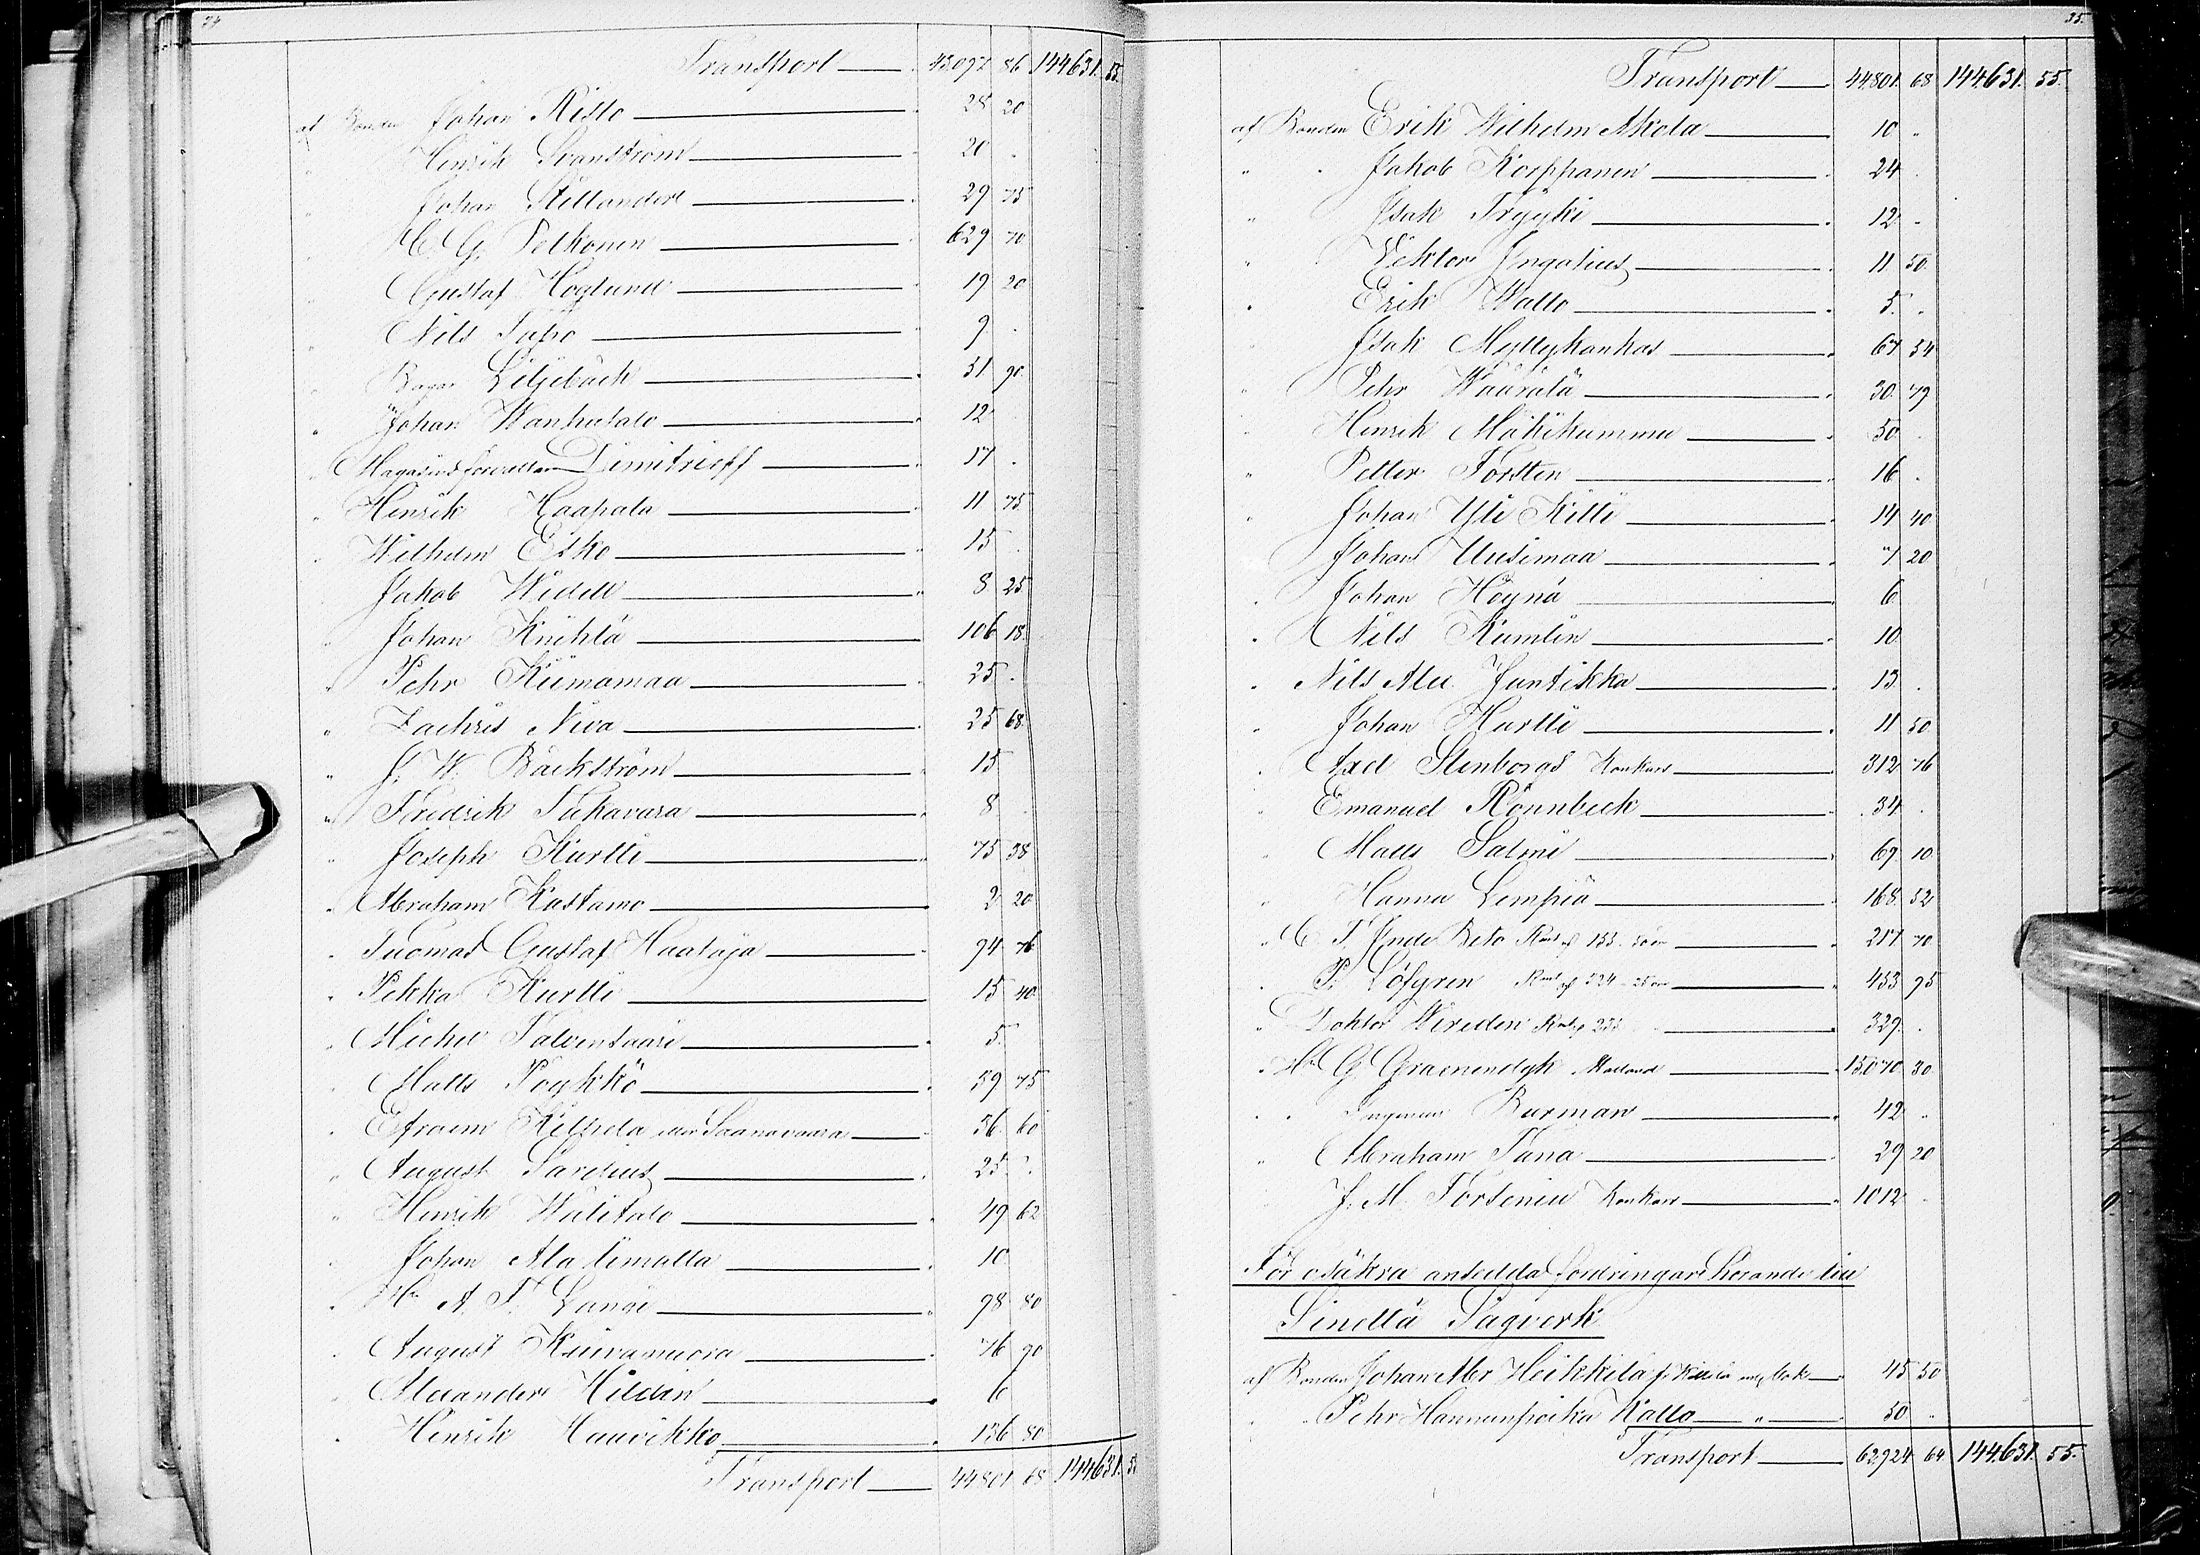 34
Transport 43,097 86 144,631. 55.
af Bonden Johan Risto 28 20
" Henrik Svanström 20 .
" Johan Stillander 29 75
" C. G. Pelkonen 629 70
" Gustaf Höglund 19 20
" Nils Tapo 9 .
" Bagar Liljebäck 31 90
" Johan Wanhatalo 12 .
" Magasinsförvaltaren Dimitrieff 17 .
" Henrik Haapala 11 75
" Wilhelm Esko 15 .
Jakob Widell 8 25
" Johan Knihtä 106 18
" Pehr Kiimamaa 25 .
" Zachris Niva 25 68
" J. W. Bäckström 15
" Fredrik Takavara 8 .
" Joseph Kurtti 75 38
" Abraham Kastamo 2 20
" Tuomas Gustaf Haataja 94 76
" Pekka Kurtti 15 40
" Michel Talvensaari 5
" Matts Pöykkö 59 75
" Efraim Kilpela eller Saanavaara 36 60
" August Sardius 25 .
" Henrik Wälitalo 49 62
" Johan Ala Uimalla 10
" Hr A. F. Lange 98 80
" August Kuivamuora 76 90
" Alexander Hilden 6
" Henrik Haavikko 136 80
Transport 44801 68 144631. 55
35.
Transport 44,801. 68 144,631. 55.
af Bonden Erik Wilhelm Akola 10 .
" " Jakob Korppanen 24 .
" Isak Fryyki 12 .
" Viktor Ingatius 11 50
" Erik Wallo 5 .
Isak Myllykankas 67 54
" Pehr Määrälä 30. 79
Henrik Mäkikummu 50 .
" Petter Torsten 16 .
" Johan Yli Kitti 14 40
Johan Uusimaa 7 20
" Johan Höynä 6
" Nils Kumlin 10
" Nils Alex. Juntikka 13 .
" Johan Hurtti 11 50
" Axel Stenborgs Konkurs 312 76
" Emanuel Rönnbeck 34 .
" Matts Salmi 69 10
" Hanna Lempiä 168 52
" C. F. Inde Beto 217 70
" P. Löfgren 453 95
" Doktor Wireden 329 .
" Hr G Graenendyk Holland 15,070 30
" " Ingeniör Burman 42 .
" Abraham Tana 29 20
J. M. Torsenin Konkurs 1012 .
För osäkra ansedda fordringar hörande till
Sinettä Sågverk
af Bonden Johan Abr Heikkilä 45 50
" " Pehr Hannunpoika Kallo " 50 .
Transport 62,924 64 144,631. 55.